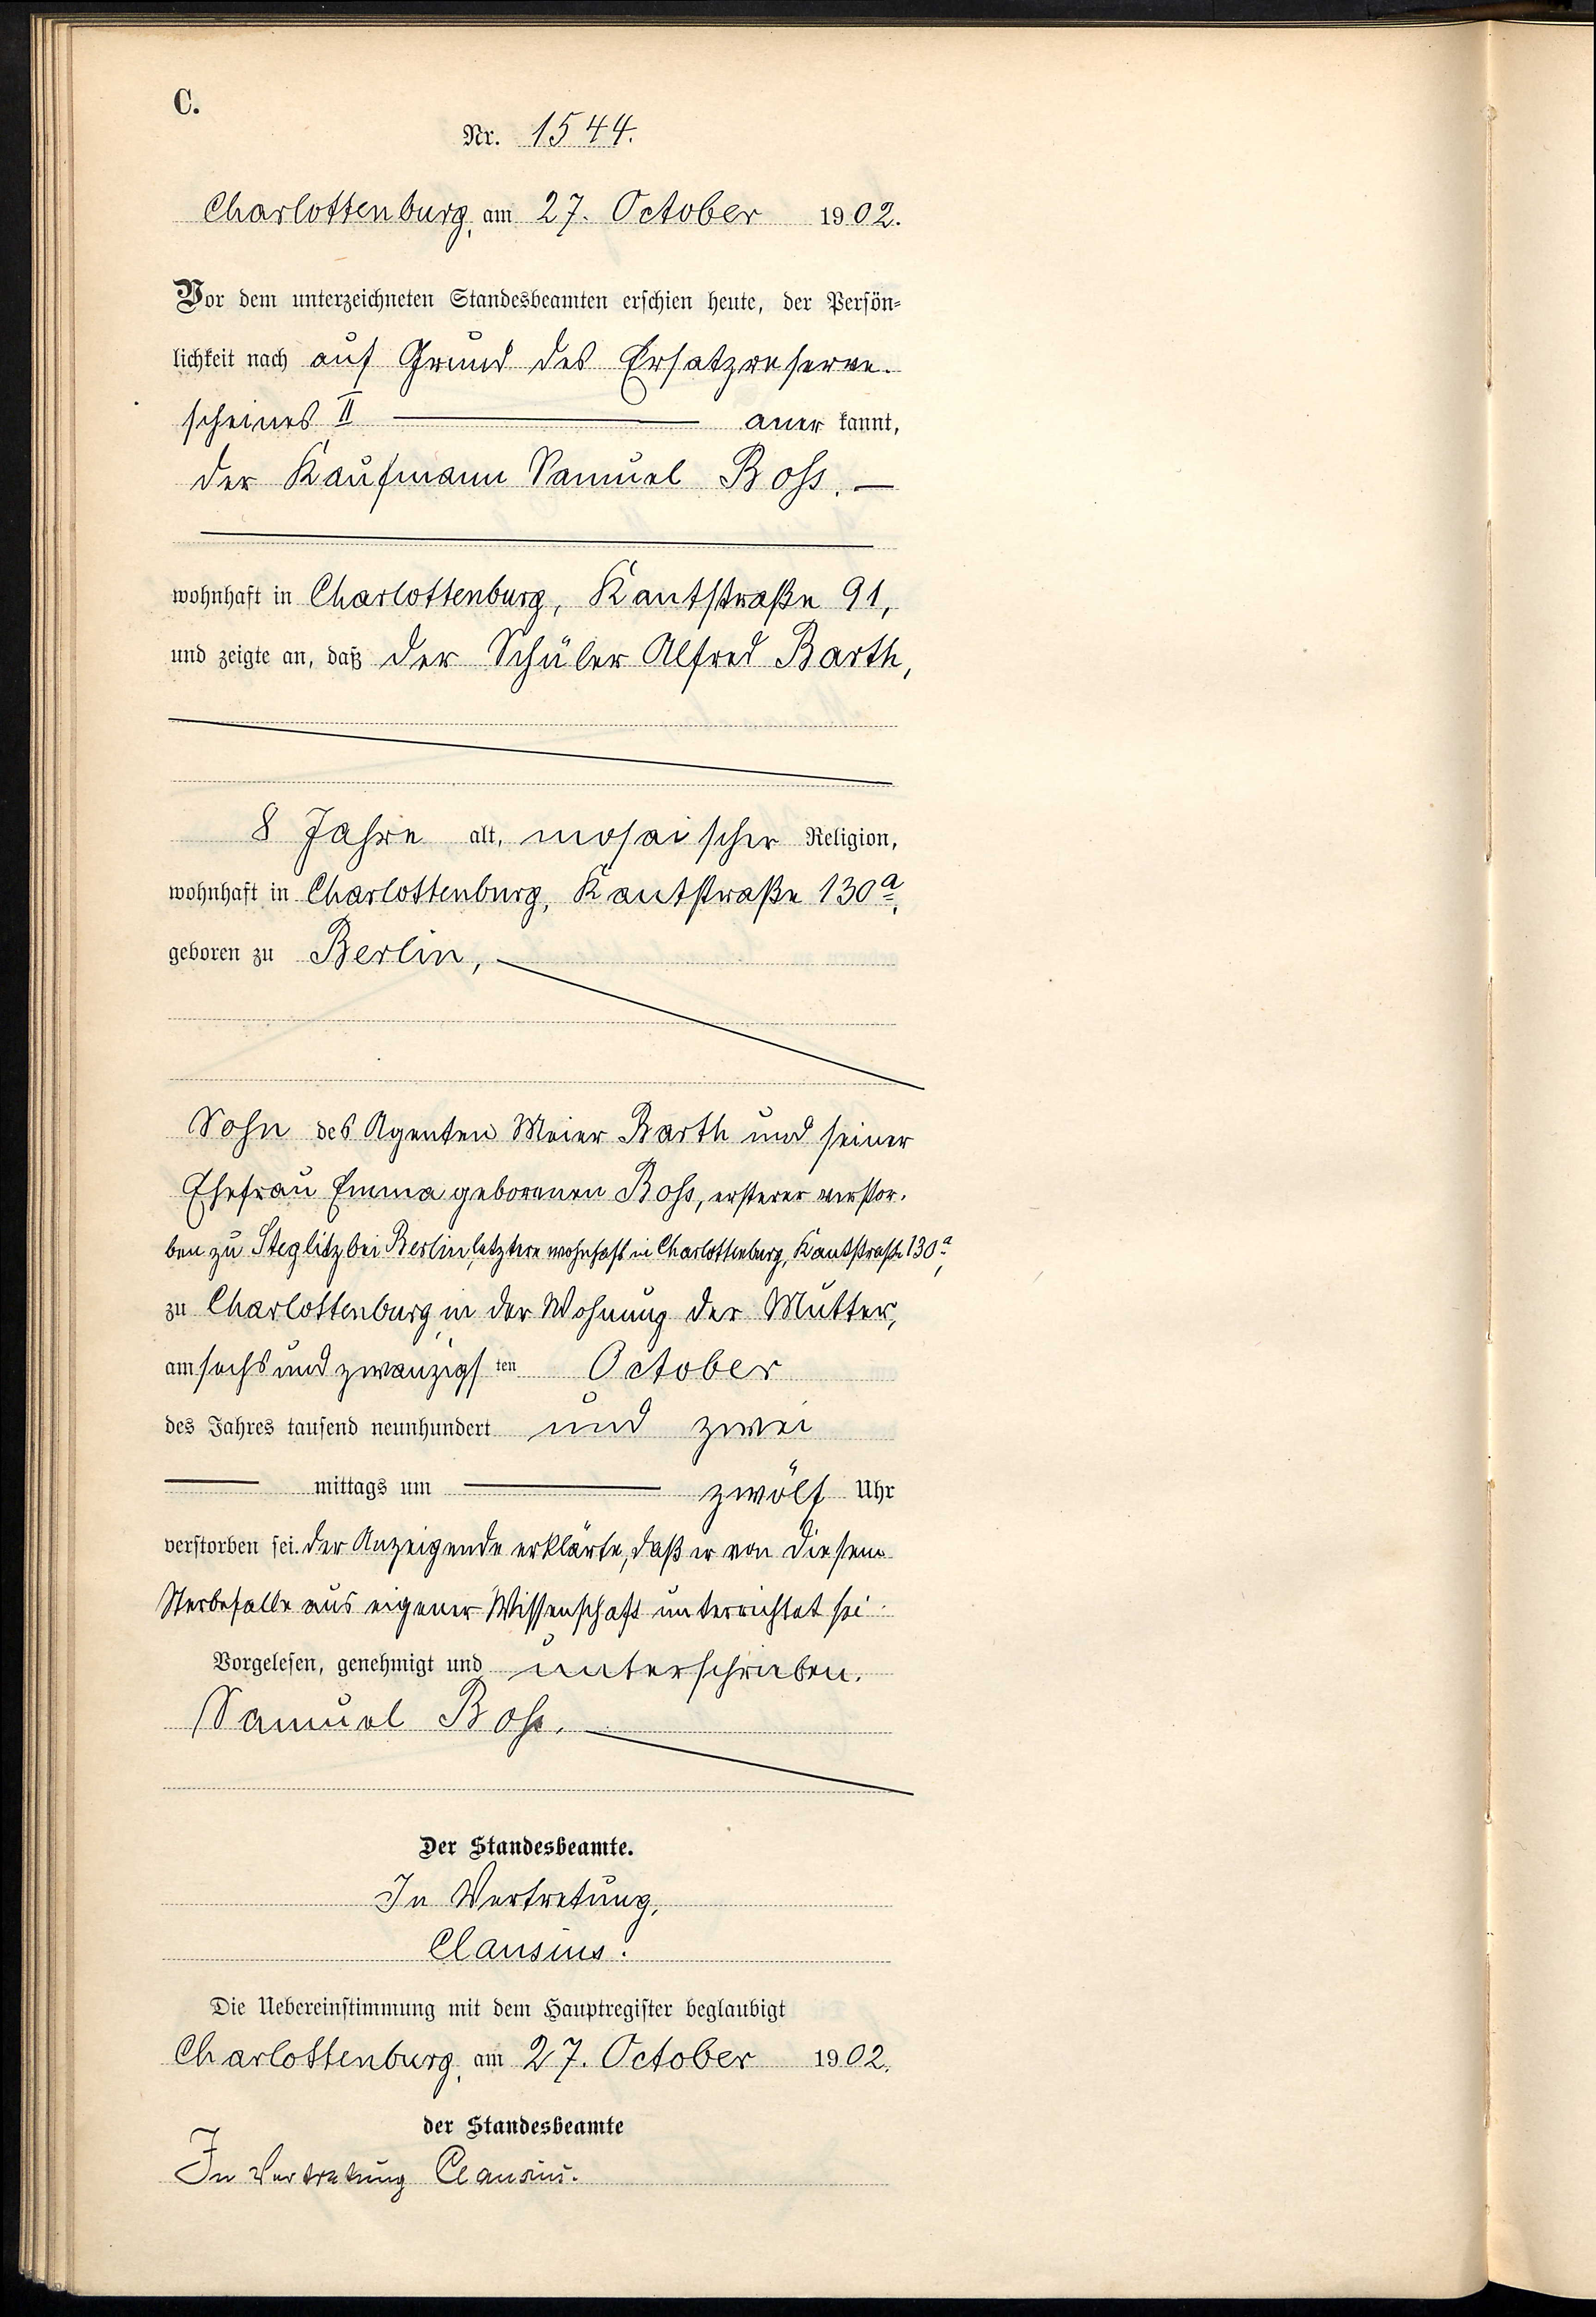 C.
Nr. 1544.
Charlottenburg, am 27. October 1902.
Vor dem unterzeichneten Standesbeamten erschien heute, der Persön-
lichkeit nach auf Grund des Ersatzreserve-
scheines II anerkannt,
der Kaufmann Samuel Boss.
wohnhaft in Charlottenburg, Kantstraße 91,
und zeigte an, daß der Schüler Alfred Barth,
8 Jahre alt, mosaischer Religion,
wohnhaft in Charlottenburg, Kantstraße 130a,
geboren zu Berlin,
Sohn des Agenten Meier Barth und seiner
Ehefrau Emma geborenen Boss, ersterer verstor-
ben zu Steglitz bei Berlin, letztere wohnhaft in Charlottenburg, Kantstraße 130a,
zu Charlottenburg, in der Wohnung der Mutter,
am sechs und zwanzigsten October
des Jahres tausend neunhundert und zwei
mittags um zwölf Uhr
verstorben sei. Der Anzeigende erklärte, daß er von diesem
Sterbefalle aus eigener Wissenschaft unterrichtet sei.
Vorgelesen, genehmigt und unterschrieben.
Samuel Boss.
Der Standesbeamte.
In Vertretung,
Clausius.
Die Uebereinstimmung mit dem Hauptregister beglaubigt
Charlottenburg, am 27. October 1902.
der Standesbeamte
In Vertretung Clausius.